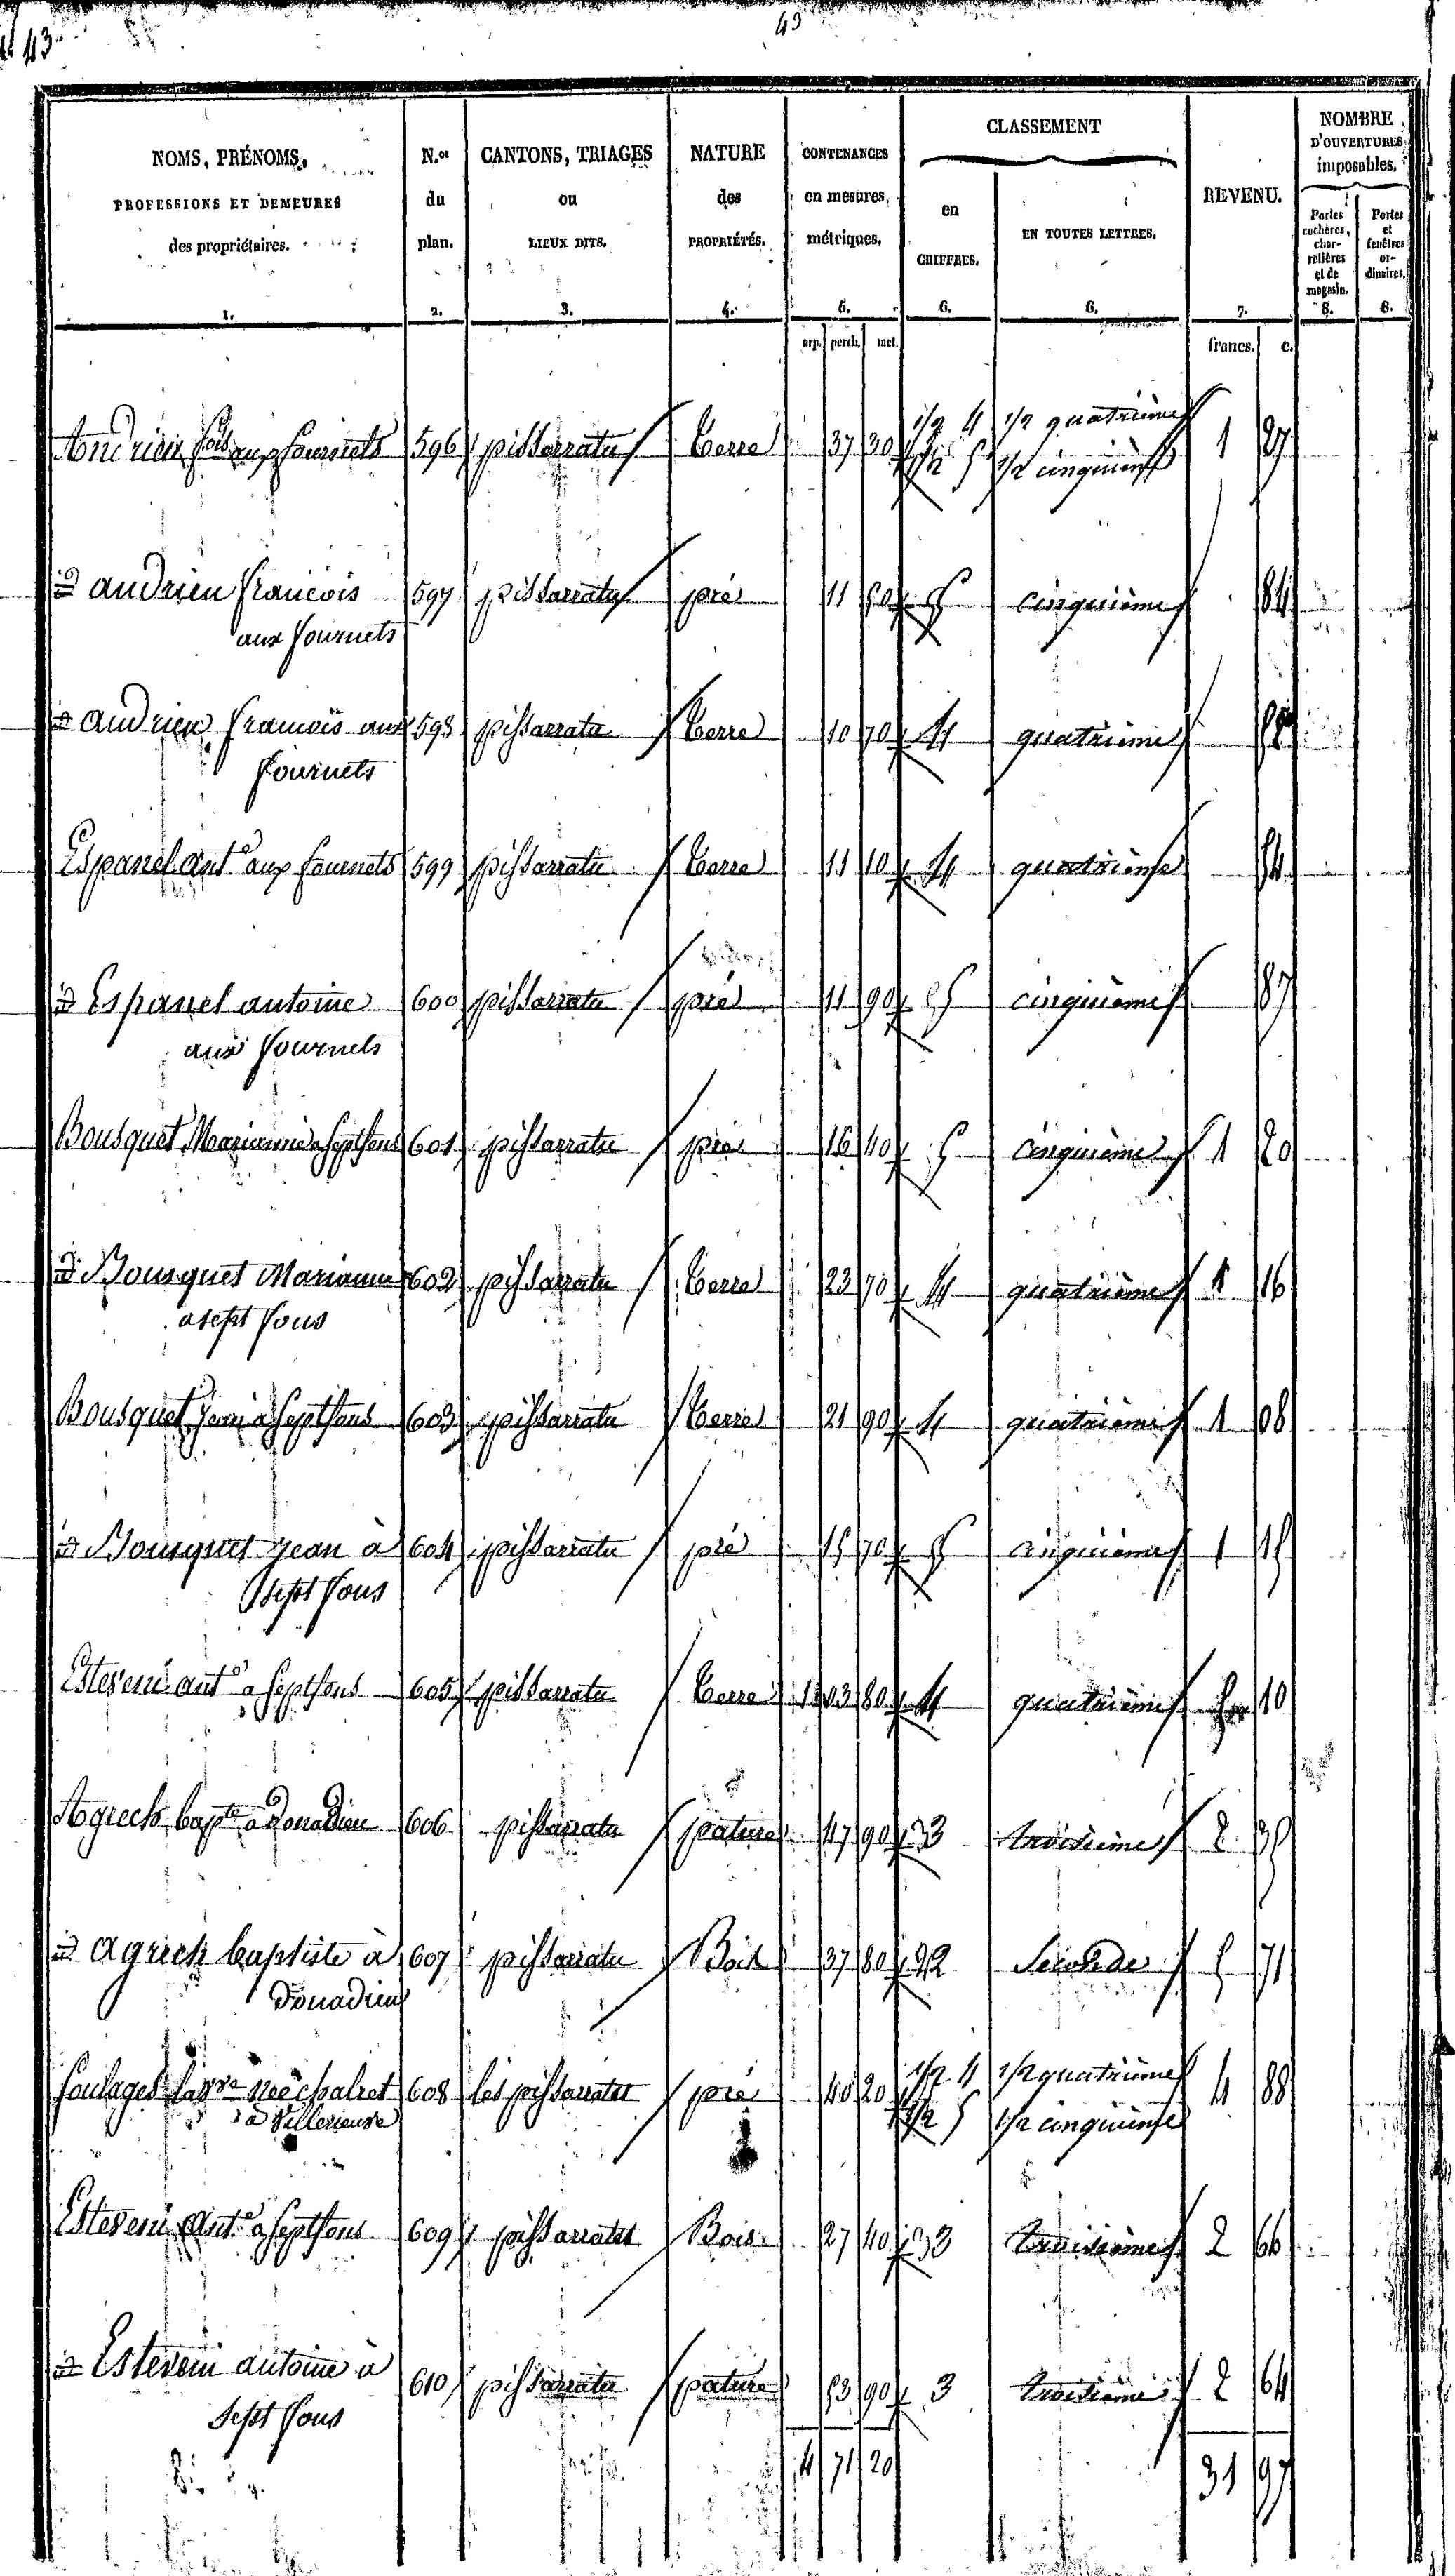 43
43
NOMS, PRÉNOMS, PROFESSIONS ET DEMEURES des propriétaires. 1.
N.os du plan. 2.
CANTONS, TRIAGES ou LIEUX DITS. 3.
NATURE des PROPRIÉTÉS. 4.
CONTENANCES en mesures métriques. 5.
CLASSEMENT
en CHIFFRES. 6.
EN TOUTES LETTRES. 6.
REVENU. 7.
NOMBRE D'OUVERTURES imposables.
Portes cochères, charretières et de magasin. 8.
Portes et fenêtres ordinaires. 8.
arp. perch. met. francs. c.
Andrieu fois aux fournets 596 pissarratu terre 37 30 1/2 4 1/2 quatrième 1 27
1/2 5 1/2 cinquième
id andrieu francois 597 pissarratu pré 11 50 5 cinquième 84
aux fournets
id andrieu francois aux 598 pissarratu terre 10 70 4 quatrième
fournets
Espanel ant.e aux fournets 599 pissarratu terre 11 10 4 quatrième 54
id Espanel antoine 600 pissarratu pré 11 90 5 cinquième 87
aux fournets
Bousquet Marianne a septfons 601 pissarratu pré 16 40 5 cinquième 1 20
id Bousquet Marianne 602 pissarratu terre 23 70 4 quatrième 1 16
a sept fons
Bousquet jean à septfons 603 pissarratu terre 21 90 4 quatrième 1 08
id Bousquet jean à 604 pissarratu pré 15 70 5 cinquième 1 15
sept fons
Esteveni ant.e a septfons 605 pissarratu terre 1 03 80 4 quatrième 5 10
Agrech bap.te a Donadieu 606 pissarratu pature 47 90 3 troisième 2 35
id agrech baptiste à 607 pissarratu Bois 37 80 2 Seconde 5 71
Donadieu
Soulages la vve née chalret 608 les pissarratu pré 40 20 1/2 4 1/2 quatrième 4 88
à Villevieuse 1/2 5 1/2 cinquième
Esteveni ant.e a septfons 609 pissarratu Bois 27 40 3 troisième 2 66
id Esteveni antoine à 610 pissarratu pature 53 90 3 troisième 2 64
sept fons
4 71 20 31 97